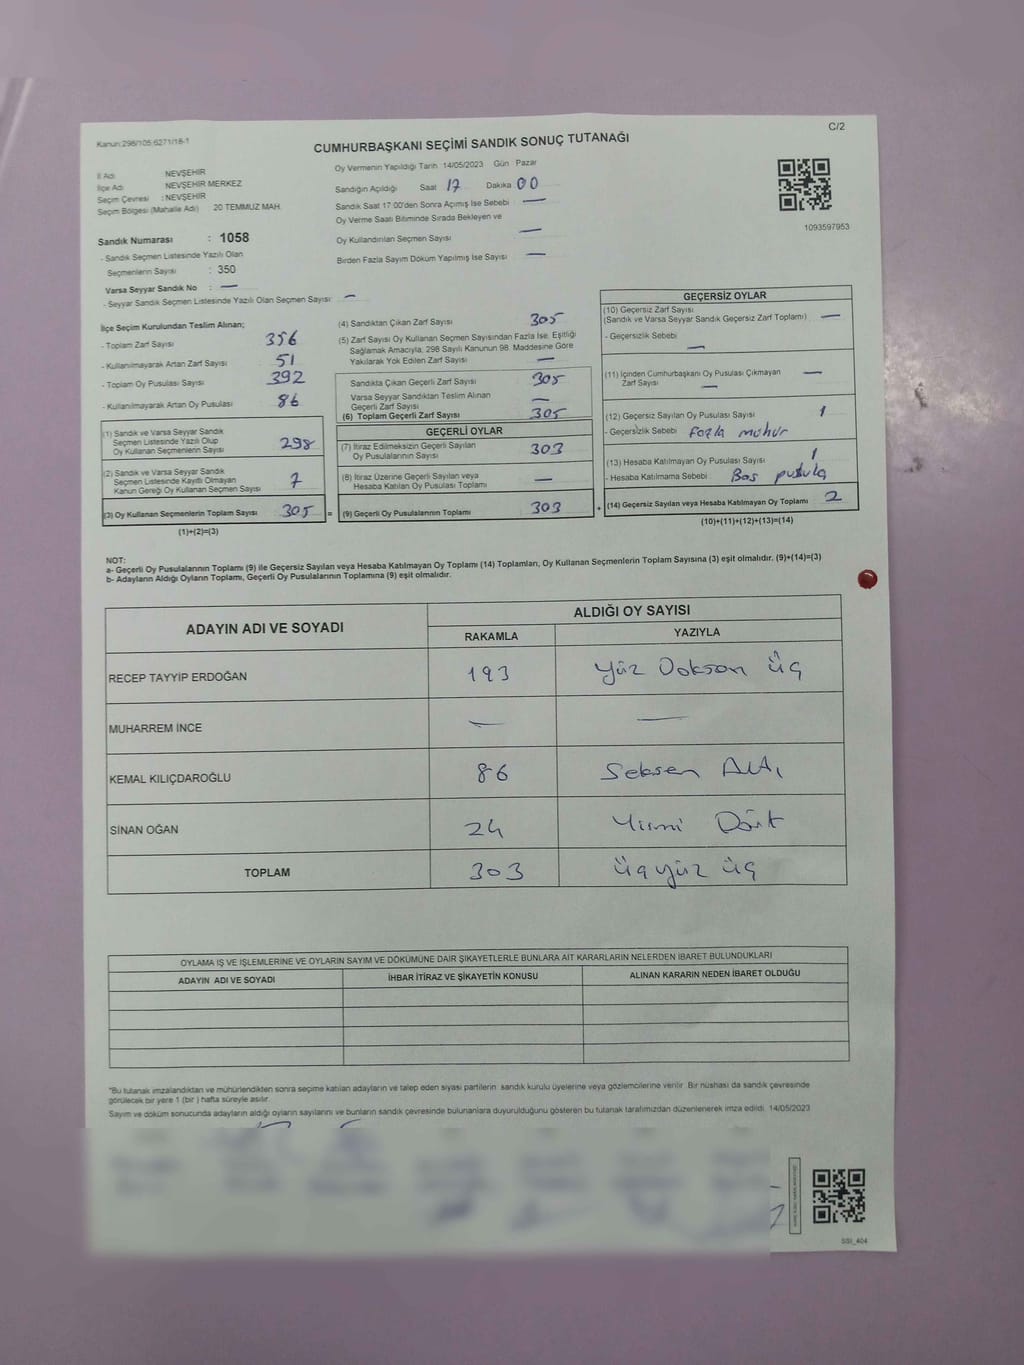 C/2
Kanun:298/105-6271/18-1
CUMHURBAŞKANI SEÇİMİ SANDIK SONUÇ TUTANAĞI
İl Adı NEVŞEHİR
İlçe Adı NEVŞEHİR MERKEZ
Seçim Çevresi : NEVŞEHİR
Seçim Bölgesi (Mahalle Adı) 20 TEMMUZ MAH.
Sandık Numarası : 1058
- Sandık Seçmen Listesinde Yazılı Olan
Seçmenlerin Sayısı : 350
Varsa Seyyar Sandık No : —
- Seyyar Sandık Seçmen Listesinde Yazılı Olan Seçmen Sayısı: —
Oy Vermenin Yapıldığı Tarih 14/05/2023 Gün Pazar
Sandığın Açıldığı Saat 17 Dakika 00
Sandık Saat 17:00'den Sonra Açımış İse Sebebi —
Oy Verme Saati Bitiminde Sırada Bekleyen ve
Oy Kullandırılan Seçmen Sayısı —
Birden Fazla Sayım Döküm Yapılmış İse Sayısı —
1093597953
İlçe Seçim Kurulundan Teslim Alınan;
- Toplam Zarf Sayısı 356
- Kullanılmayarak Artan Zarf Sayısı 51
- Toplam Oy Pusulası Sayısı 392
- Kullanılmayarak Artan Oy Pusulası 86
(1) Sandık ve Varsa Seyyar Sandık
Seçmen Listesinde Yazılı Olup
Oy Kullanan Seçmenlerin Sayısı 298
(2) Sandık ve Varsa Seyyar Sandık
Seçmen Listesinde Kayıtlı Olmayan
Kanun Gereği Oy Kullanan Seçmen Sayısı 7
(3) Oy Kullanan Seçmenlerin Toplam Sayısı 305 =
(1)+(2)=(3)
(4) Sandıktan Çıkan Zarf Sayısı 305
(5) Zarf Sayısı Oy Kullanan Seçmen Sayısından Fazla İse, Eşitliği
Sağlamak Amacıyla, 298 Sayılı Kanunun 98. Maddesine Göre
Yakılarak Yok Edilen Zarf Sayısı —
Sandıkta Çıkan Geçerli Zarf Sayısı 305
Varsa Seyyar Sandıktan Teslim Alınan
Geçerli Zarf Sayısı —
(6) Toplam Geçerli Zarf Sayısı 305
GEÇERLİ OYLAR
(7) İtiraz Edilmeksizin Geçerli Sayılan
Oy Pusulalarının Sayısı 303
(8) İtiraz Üzerine Geçerli Sayılan veya
Hesaba Katılan Oy Pusulası Toplamı —
(9) Geçerli Oy Pusulalarının Toplamı 303 +
GEÇERSİZ OYLAR
(10) Geçersiz Zarf Sayısı
(Sandık ve Varsa Seyyar Sandık Geçersiz Zarf Toplamı) —
- Geçersizlik Sebebi —
(11) İçinden Cumhurbaşkanı Oy Pusulası Çıkmayan
Zarf Sayısı — —
(12) Geçersiz Sayılan Oy Pusulası Sayısı 1
- Geçersizlik Sebebi Fazla mühür
(13) Hesaba Katılmayan Oy Pusulası Sayısı 1
- Hesaba Katılmama Sebebi Boş pusula
(14) Geçersiz Sayılan veya Hesaba Katılmayan Oy Toplamı 2
(10)+(11)+(12)+(13)=(14)
NOT:
a- Geçerli Oy Pusulalarının Toplamı (9) ile Geçersiz Sayılan veya Hesaba Katılmayan Oy Toplamı (14) Toplamları, Oy Kullanan Seçmenlerin Toplam Sayısına (3) eşit olmalıdır. (9)+(14)=(3)
b- Adayların Aldığı Oyların Toplamı, Geçerli Oy Pusulalarının Toplamına (9) eşit olmalıdır.
ADAYIN ADI VE SOYADI ALDIĞI OY SAYISI
RAKAMLA YAZIYLA
RECEP TAYYİP ERDOĞAN 193 Yüz Doksan üç
MUHARREM İNCE — —
KEMAL KILIÇDAROĞLU 86 Seksen Altı
SİNAN OĞAN 24 Yirmi Dört
TOPLAM 303 üçyüz üç
OYLAMA İŞ VE İŞLEMLERİNE VE OYLARIN SAYIM VE DÖKÜMÜNE DAİR ŞİKAYETLERLE BUNLARA AİT KARARLARIN NELERDEN İBARET BULUNDUKLARI
ADAYIN ADI VE SOYADI İHBAR İTİRAZ VE ŞİKAYETİN KONUSU ALINAN KARARIN NEDEN İBARET OLDUĞU
*Bu tutanak imzalandıktan ve mühürlendikten sonra seçime katılan adayların ve talep eden siyasi partilerin sandık kurulu üyelerine veya gözlemcilerine verilir. Bir nüshası da sandık çevresinde
görülecek bir yere 1 (bir ) hafta süreyle asılır.
Sayım ve döküm sonucunda adayların aldığı oyların sayılarını ve bunların sandık çevresinde bulunanlara duyurulduğunu gösteren bu tutanak tarafımızdan düzenlenerek imza edildi. 14/05/2023
SSI_404